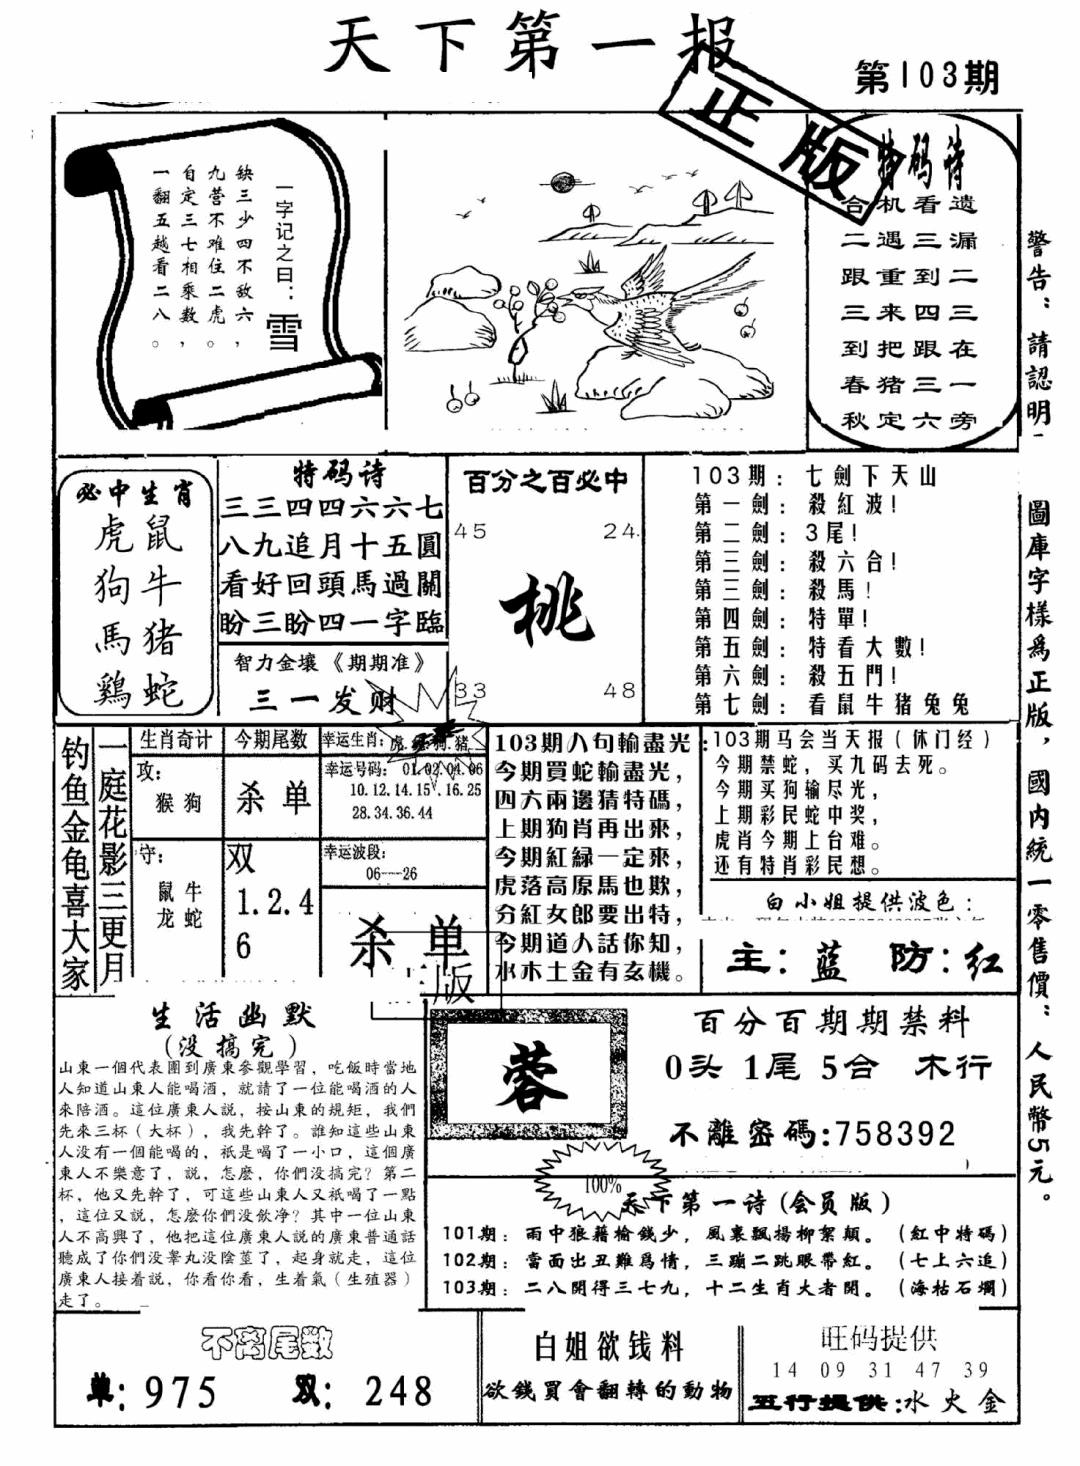 天下第一报
第103期
正版
一字记之曰：雪
缺三少四不敌六，
九营不难住二虎。
自定三七相乘数，
一翻五越看二八。
特码诗
合机看遗
二遇三漏
跟重到二
三来四三
到把跟在
春猪三一
秋定六旁
警告：請認明
圖庫字樣為正版，國内統一零售價：人民幣5元。
必中生肖
虎鼠
狗牛
馬猪
鷄蛇
特码诗
三三四四六六七
八九追月十五圓
看好回頭馬過關
盼三盼四一字臨
智力金壤《期期准》
三一发财
百分之百必中
45 24
桃
33 48
103期：七劍下天山
第一劍：殺紅波！
第二劍：3尾！
第三劍：殺六合！
第三劍：殺馬！
第四劍：特單！
第五劍：特看大數！
第六劍：殺五門！
第七劍：看鼠牛猪兔兔
钓鱼金龟喜大家
一庭花影三更月
生肖奇计
攻：
猴狗
守：
鼠牛
龙蛇
今期尾数
杀单
双
1.2.4
6
幸运生肖：虎.狗.猪
幸运号码：01.02.04.06
10.12.14.15.16.25
28.34.36.44
幸运波段：
06---26
杀单
版
103期八句輸盡光：
今期買蛇輸盡光，
四六兩邊猜特碼，
上期狗肖再出來，
今期紅緑一定來，
虎落高原馬也欺，
分紅女郎要出特，
今期道人話你知，
水木土金有玄機。
103期马会当天报（休门经）
今期禁蛇，买九码去死。
今期买狗输尽光，
上期彩民蛇中奖，
虎肖今期上台难。
还有特肖彩民想。
白小姐提供波色：
主：蓝 防：红
生活幽默
（没搞完）
山東一個代表團到廣東參觀學習，吃飯時當地
人知道山東人能喝酒，就請了一位能喝酒的人
來陪酒。這位廣東人説，按山東的規矩，我們
先來三杯（大杯），我先幹了。誰知這些山東
人没有一個能喝的，衹是喝了一小口，這個廣
東人不樂意了，説，怎麽，你們没搞完？第二
杯，他又先幹了，可這些山東人又衹喝了一點
，這位又説，怎麽你們没飲净？其中一位山東
人不高興了，他把這位廣東人説的廣東普通話
聽成了你們没睾丸没陰莖了，起身就走，這位
廣東人接着説，你看你看，生着氣（生殖器）
走了。
蓉
百分百期期禁料
0头 1尾 5合 木行
不離密碼:758392
100%
天下第一诗(会员版)
101期：雨中狼藉榆錢少，風裏飄揚柳絮顛。（紅中特碼）
102期：當面出丑難爲情，三蹦二跳眼帶紅。（七上六追）
103期：二八開得三七九，十二生肖大者開。（海枯石爛）
不离尾数
单：975 双：248
白姐欲钱料
欲錢買會翻轉的動物
旺码提供
14 09 31 47 39
五行提供：水火金